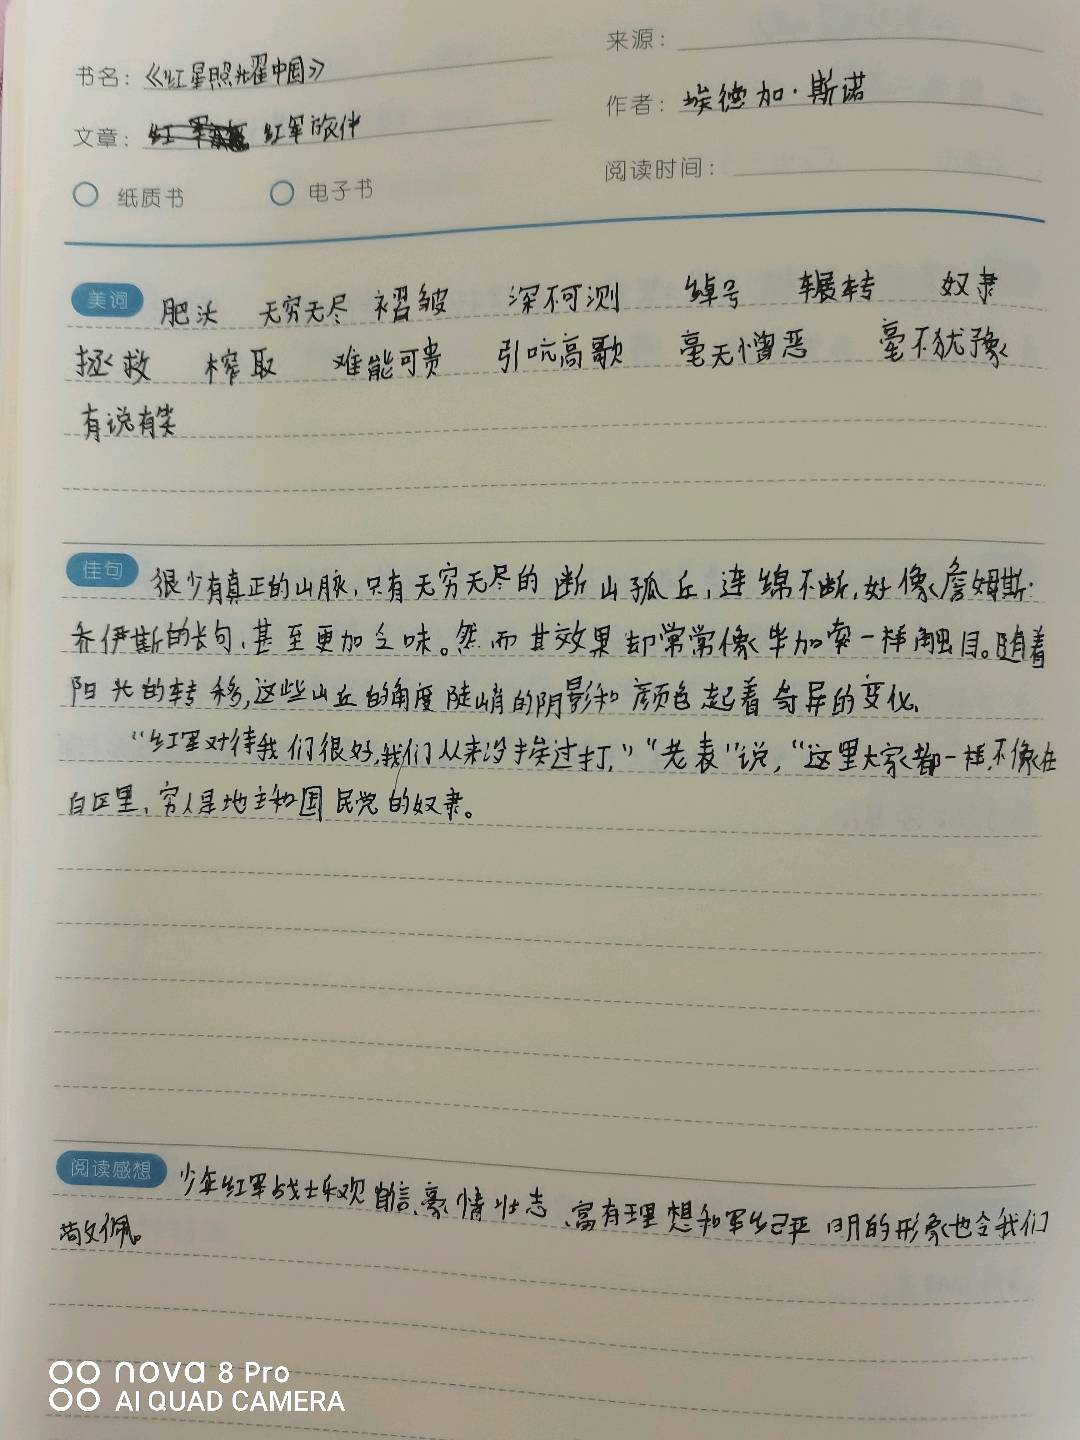 书名：《红星照耀中国》
来源：
作者：埃德加·斯诺
文章：红军旅伴
阅读时间：
纸质书 电子书
美词 肥沃 无穷无尽 褶皱 深不可测 绰号 辗转 奴隶
拯救 榨取 难能可贵 引吭高歌 毫无憎恶 毫不犹豫
有说有笑
佳句 很少有真正的山脉，只有无穷无尽的断山孤丘，连绵不断，好像詹姆斯·
乔伊斯的长句，甚至更加乏味。然而其效果却常常像毕加索一样触目。随着
阳光的转移，这些山丘的角度陡峭的阴影和颜色起着奇异的变化。
“红军对待我们很好，我们从来没挨过打，”“老表”说，“这里大家都一样，不像在
白区里，穷人是地主和国民党的奴隶。
阅读感想 少年红军战士乐观自信、豪情壮志、富有理想和军纪严明的形象也令我们
敬佩。
nova 8 Pro
AI QUAD CAMERA